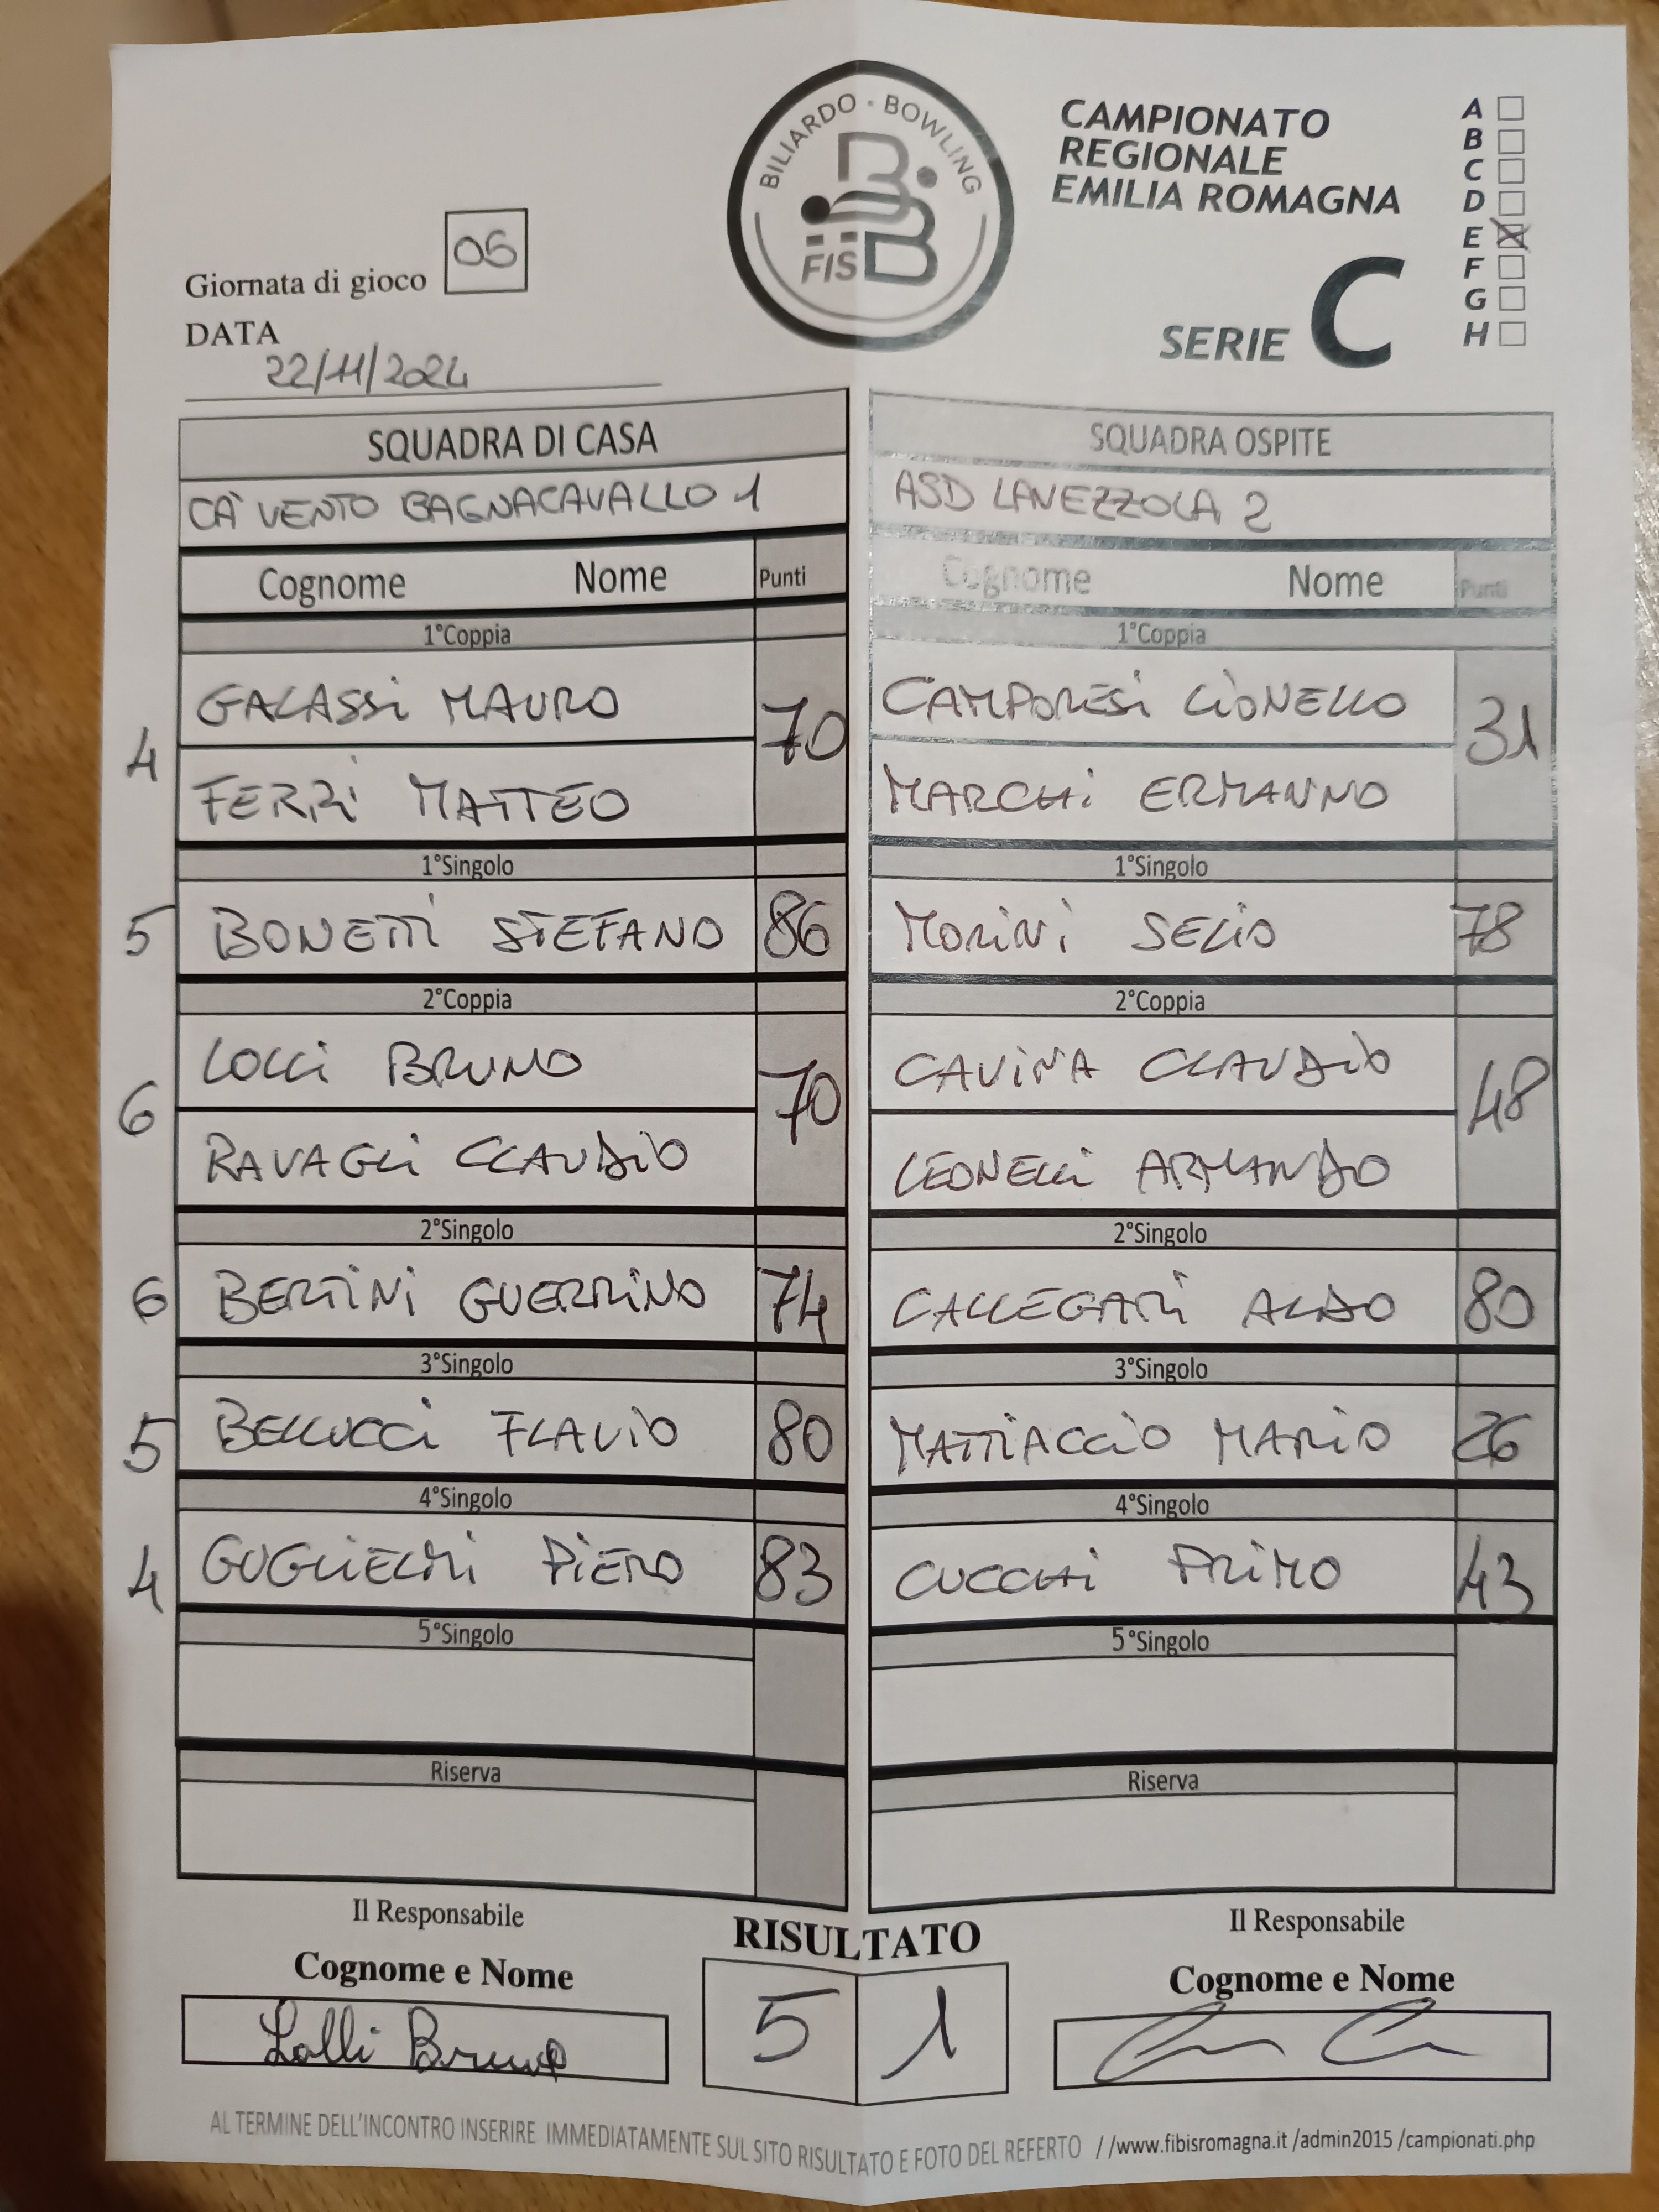 BILIARDO · BOWLING
FISBB
CAMPIONATO
REGIONALE
EMILIA ROMAGNA
SERIE C
A
B
C
D
E
F
G
H
Giornata di gioco 05
DATA
22/11/2024
SQUADRA DI CASA
CA' VENTO BAGNACAVALLO 1
Cognome Nome Punti
1°Coppia
4 GALASSI MAURO 70
FERRI MATTEO
1°Singolo
5 BONETTI STEFANO 86
2°Coppia
6 LOLLI BRUNO 70
RAVAGLI CLAUDIO
2°Singolo
6 BERTINI GUERRINO 74
3°Singolo
5 BELLUCCI FLAVIO 80
4°Singolo
4 GUGLIELMI PIERO 83
5°Singolo
Riserva
SQUADRA OSPITE
ASD LAVEZZOLA 2
Cognome Nome Punti
1°Coppia
CAMPORESI LIONELLO 31
MARCHI ERMANNO
1°Singolo
MORINI SELIO 78
2°Coppia
CAVINA CLAUDIO 48
LEONELLI ARMANDO
2°Singolo
CALLEGARI ALDO 80
3°Singolo
MATTIACCIO MARIO 26
4°Singolo
CUCCHI PRIMO 43
5°Singolo
Riserva
Il Responsabile
Cognome e Nome
Lolli Bruno
RISULTATO
5 1
Il Responsabile
Cognome e Nome
AL TERMINE DELL'INCONTRO INSERIRE IMMEDIATAMENTE SUL SITO RISULTATO E FOTO DEL REFERTO //www.fibisromagna.it /admin2015 /campionati.php